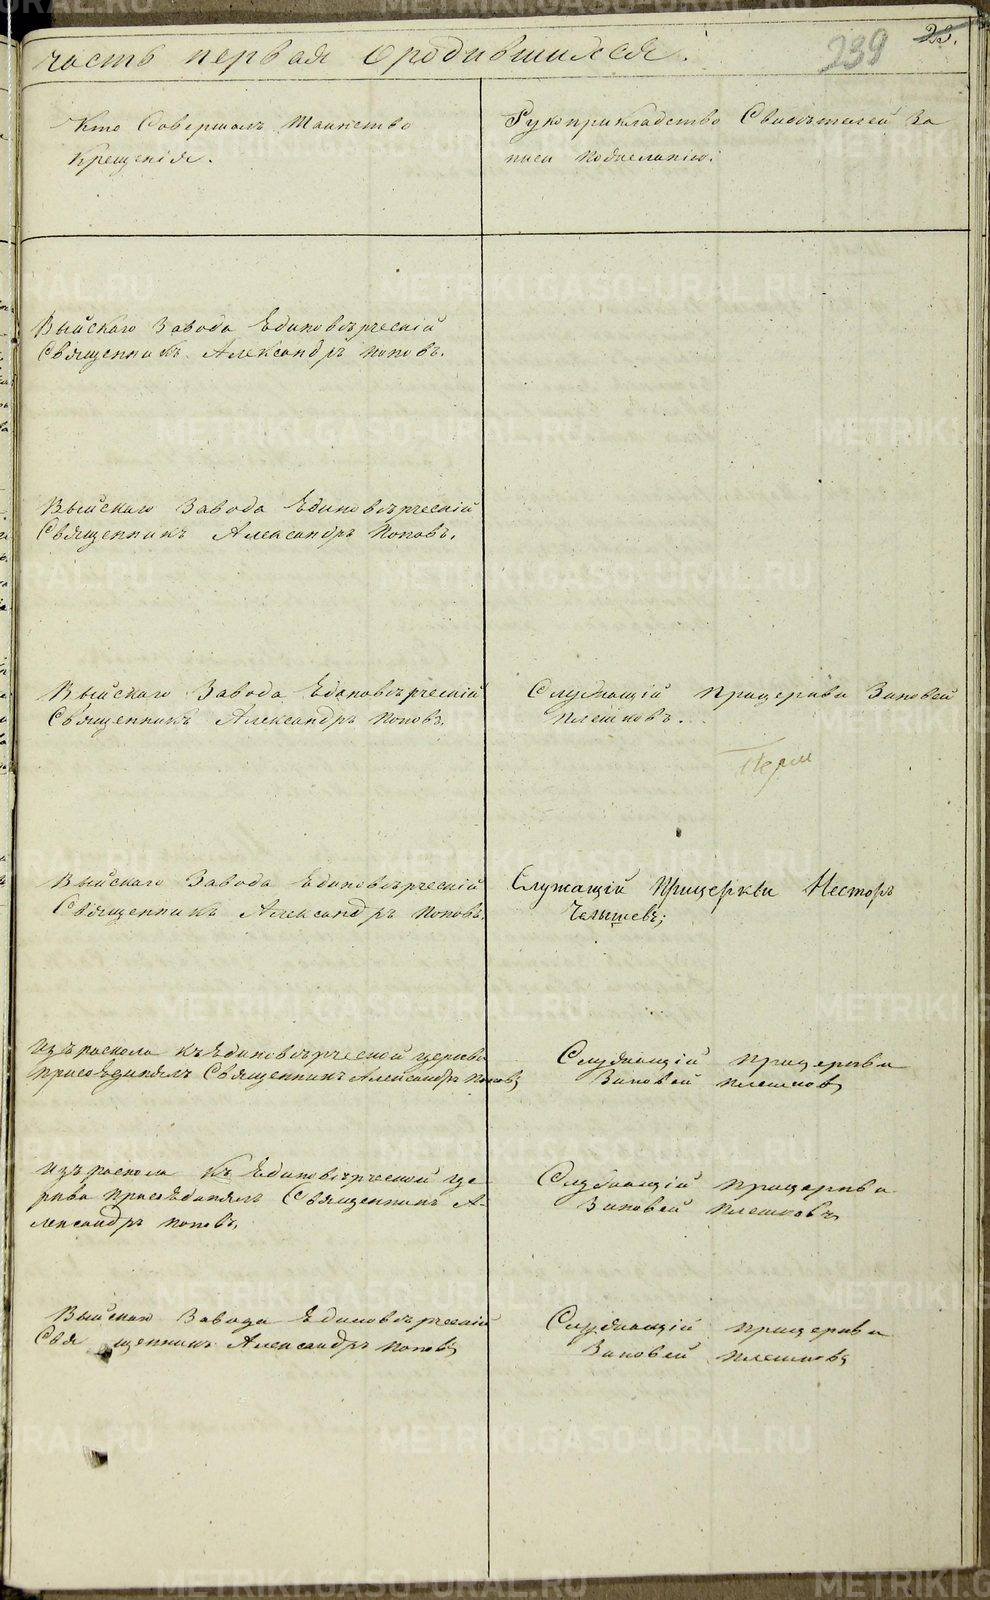 часть первая о родившихся.
239
22.
Кто Совершалъ Таинство
Крещенія.
Рукоприкладство Свидѣтелей За
писи пожеланію:
Выйскаго Завода Единовѣрческій
Священникъ Александръ Поповъ.
Выйскаго Завода Единовѣрческій
Священникъ Александръ Поповъ.
Выйскаго Завода Единовѣрческій
Священникъ Александръ Поповъ.
Служащій прицеркви Зиновей
Плешковъ.
Выйскаго Завода Единовѣрческій
Священникъ Александръ Поповъ.
Служащій Прицеркви Несторъ
изъ раскола къ Единовѣрческой церкви
присоединялъ Священникъ Александръ Поповъ
Служащій прицеркви
Зиновей Плешковъ
изъ раскола къ Единовѣрческой це
ркви присоединялъ Священникъ А-
лександръ Поповъ
Служащій прицеркви
Зиновей Плешковъ
Выйскаго Завода Единовѣрческій
Священникъ Александръ Поповъ
Служащій прицеркви
Зиновей Плешковъ
METRIKI.GASO-URAL.RU